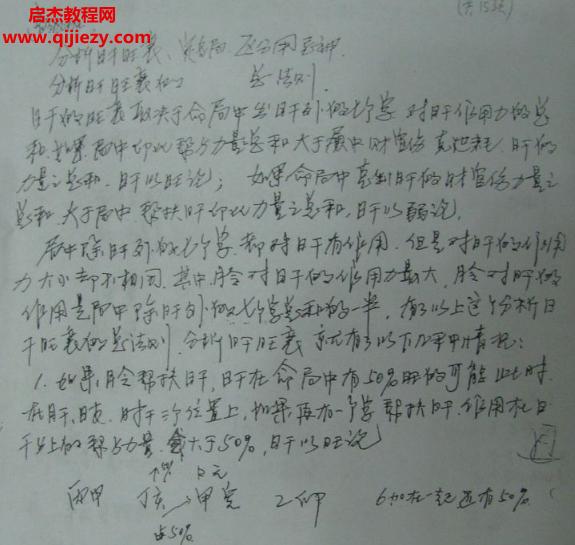 启杰教程网
www.qijiezy.cn
(共15张)
分析日干旺衰、类格局、区分用忌神
分析日干旺衰的 总法则
日干的旺衰取决于命局中出日干外的七个字对日干作用力的总
和,如果局中印比帮扶力量总和大于局中财官伤克泄耗日干的
力量之总和,日干以旺论;如果命局中克制日干的财官伤力量之
总和大于局中帮扶日干印比力量之总和,日干以弱论。
局中除日干外的七个字,都对日干有作用,但是对日干的作用
力大小却不相同,其中月令对日干的作用力最大,月令对日干的
作用是局中除日干外的七个字总和的一半,有了以上这个分析日
干旺衰的总法则,分析日干旺衰就有了以下几种情况:
1.如果月令帮扶日干,日干在命局中有50%旺的可能,此时
在月干、日支、时干三个位置上,如果再有一个字帮扶日干,作用在日
干上的帮扶力量会大于50%,日干以旺论
日元
丙申 丁亥→甲寅 乙卯 6加在一起还有50%
占50%